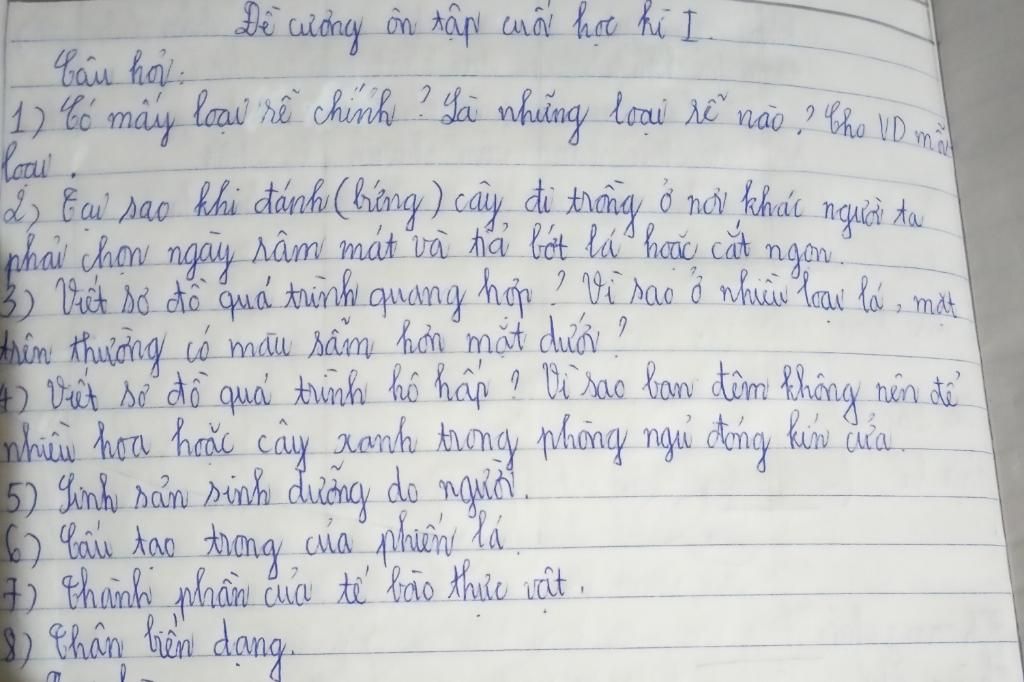 Đề cương ôn tập cuối học kì I.
Câu hỏi:
1) Có mấy loại rễ chính? Là những loại rễ nào? Cho VD mỗi
loại.
2) Tại sao khi đánh (bứng) cây đi trồng ở nơi khác người ta
phải chọn ngày râm mát và tỉa bớt lá hoặc cắt ngọn.
3) Viết sơ đồ quá trình quang hợp? Vì sao ở nhiều loại lá, mặt
trên thường có màu sẫm hơn mặt dưới?
4) Viết sơ đồ quá trình hô hấp? Vì sao ban đêm không nên để
nhiều hoa hoặc cây xanh trong phòng ngủ đóng kín cửa.
5) Sinh sản sinh dưỡng do người.
6) Cấu tạo trong của phiến lá.
7) Thành phần của tế bào thực vật.
8) Thân biến dạng.